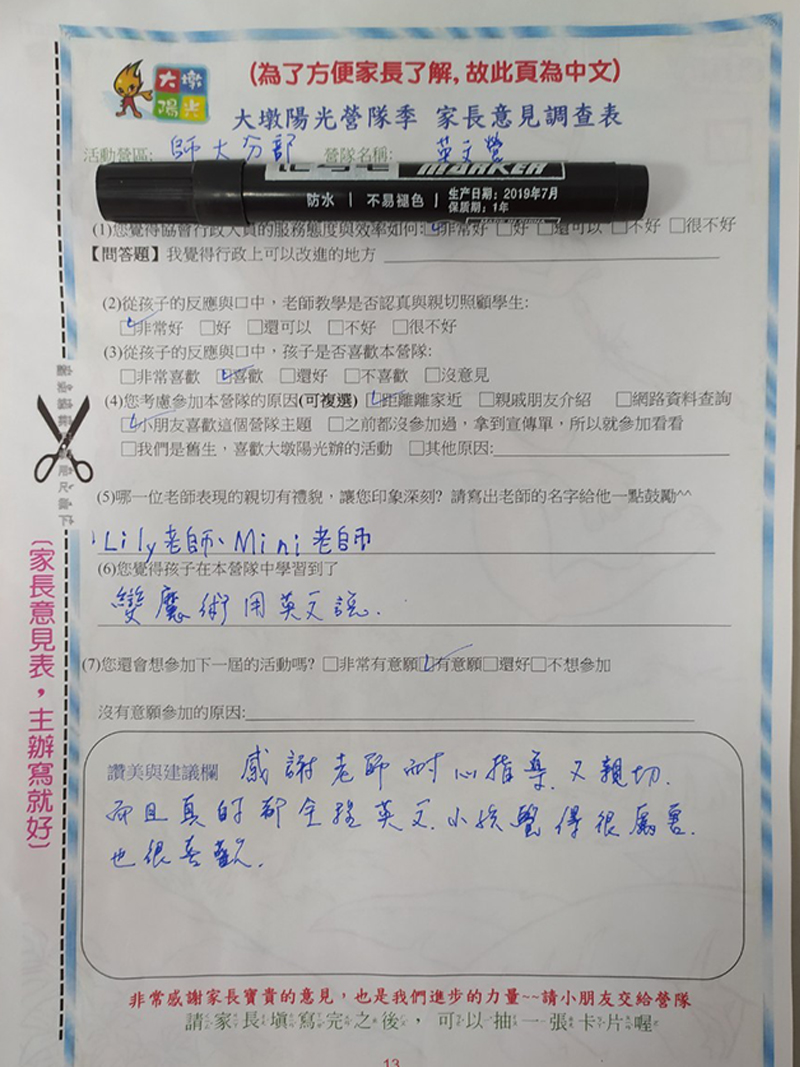 (為了方便家長了解, 故此頁為中文)
大墩陽光
大墩陽光營隊季 家長意見調查表
活動營區: 師大分部 營隊名稱: 英文營
MARKER
防水 | 不易褪色 | 生产日期：2019年7月
保质期：1年
MADE IN CHINA
(1)您覺得協會行政人員的服務態度與效率如何:□非常好 □好 □還可以 □不好 □很不好
【問答題】我覺得行政上可以改進的地方
(2)從孩子的反應與口中，老師教學是否認真與親切照顧學生:
□非常好 □好 □還可以 □不好 □很不好
(3)從孩子的反應與口中，孩子是否喜歡本營隊:
□非常喜歡 □喜歡 □還好 □不喜歡 □沒意見
(4)您考慮參加本營隊的原因(可複選) □距離離家近 □親戚朋友介紹 □網路資料查詢
□小朋友喜歡這個營隊主題 □之前都沒參加過，拿到宣傳單，所以就參加看看
□我們是舊生，喜歡大墩陽光辦的活動 □其他原因:
(5)哪一位老師表現的親切有禮貌，讓您印象深刻? 請寫出老師的名字給他一點鼓勵^^
Lily老師、Mini老師
(6)您覺得孩子在本營隊中學習到了
變魔術用英文說.
(7)您還會想參加下一屆的活動嗎? □非常有意願□有意願□還好□不想參加
沒有意願參加的原因:
讚美與建議欄 感謝老師耐心指導.又親切.
而且真的都全程英文.小孩覺得很厲害.
也很喜歡.
非常感謝家長寶貴的意見，也是我們進步的力量~~請小朋友交給營隊
請家長填寫完之後，可以抽一張卡片喔
13
(家長意見表，主辦寫就好)